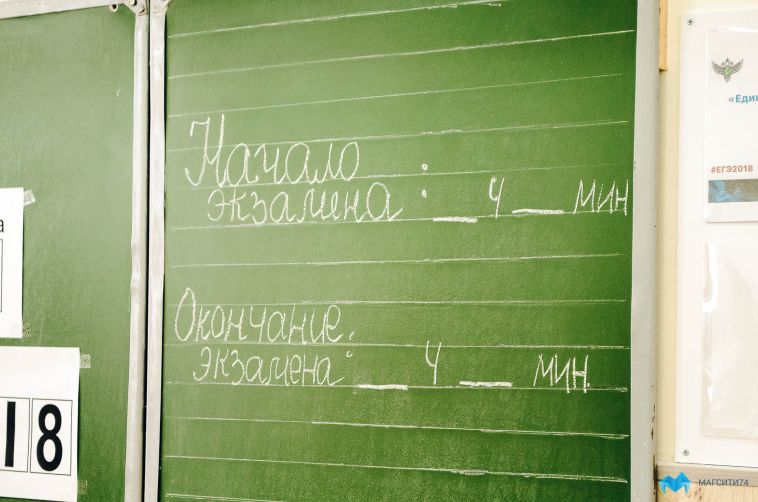 Начало
экзамена : __ ч __ мин
Окончание
экзамена : __ ч __ мин.
а
18
«Един
#ЕГЭ2018
МАГСИТИ74